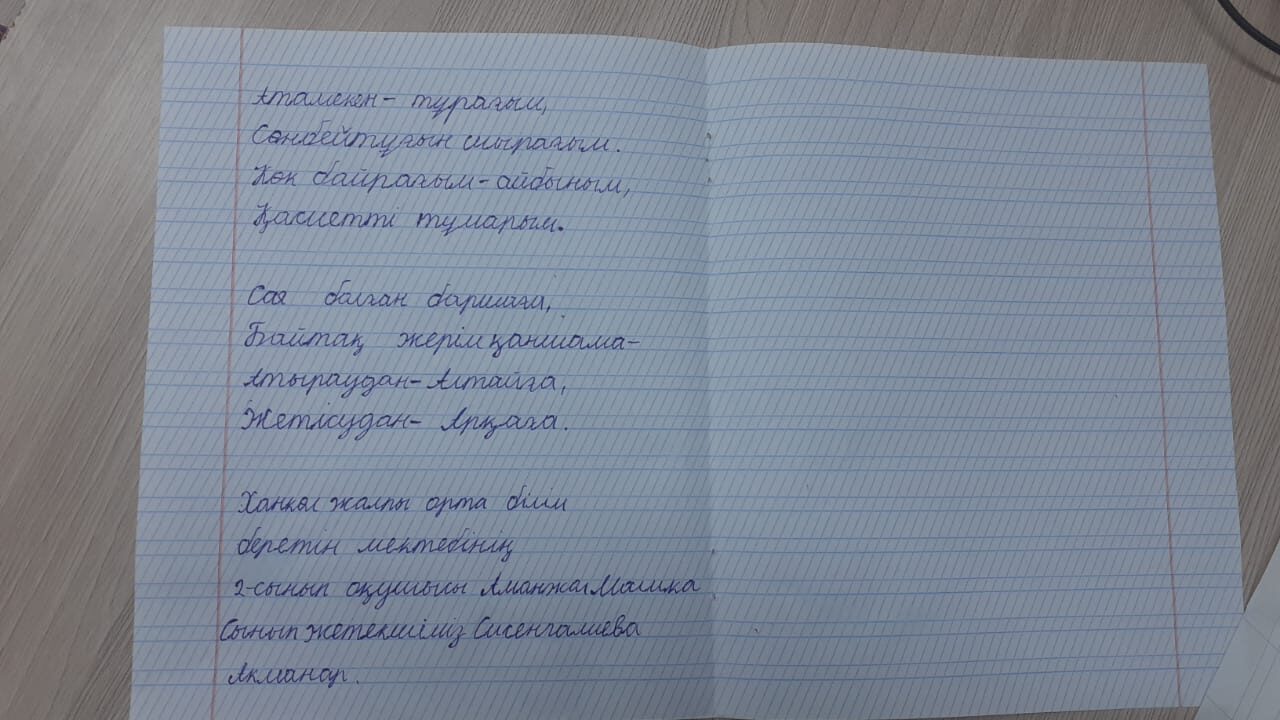 Атамекен- тұрағым,
Сөнбейтұғын шырағым.
Көк байрағым-айбыным,
Қасиетті тұмарым.
Сая болған баршаға,
Байтақ жерім қаншама-
Атыраудан-Алтайға,
Жетісудан- Арқаға.
Ханкөл жалпы орта білім
беретін мектебінің
2-сынып оқушысы Аманжол Малика
Сынып жетекшіміз Сисенгалиева
Акманар.